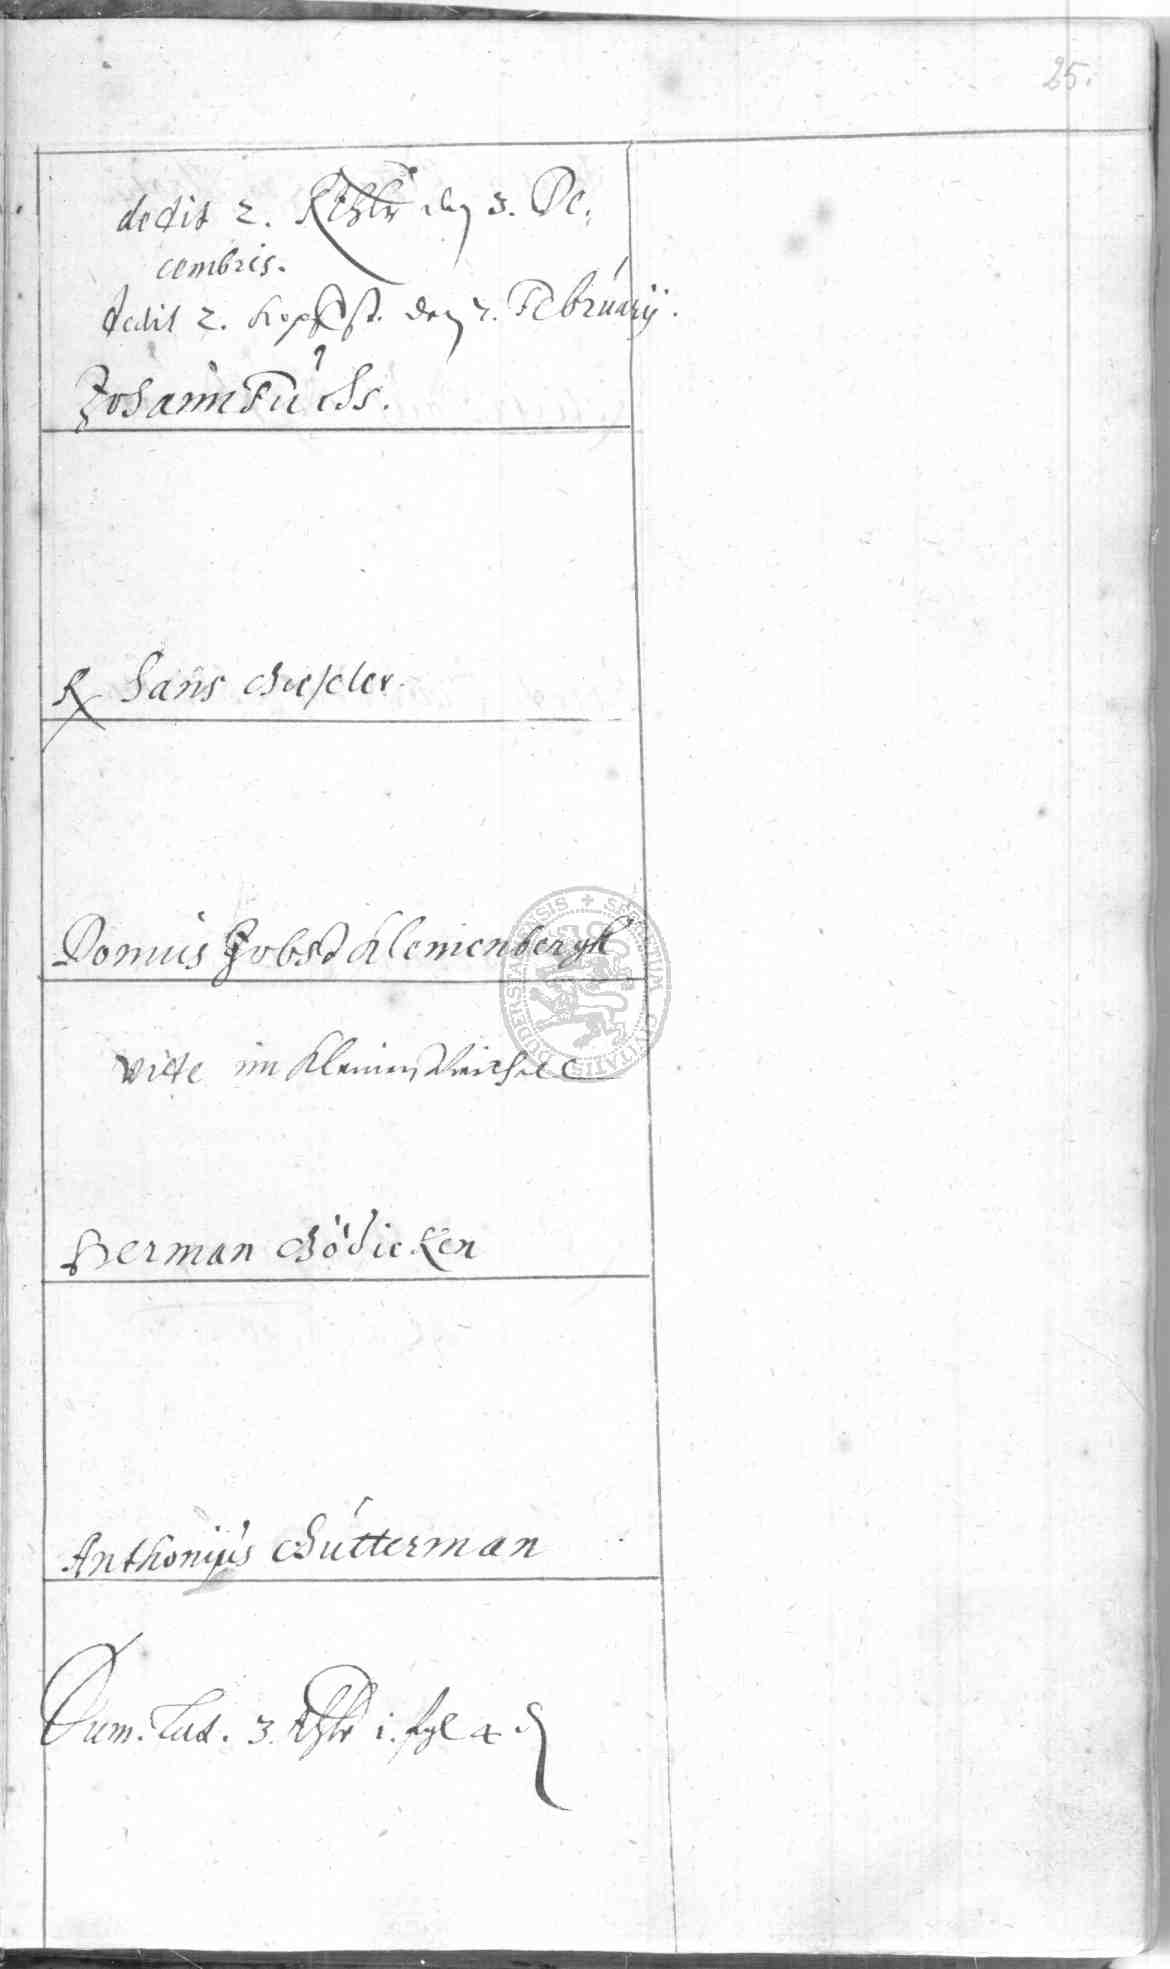 25.
dedit 2. Rthlr den 3. De,
cembris.
dedit 2. Kopfst. den 2. Februarij.
Johann Fuchs.
Hans Gieseler.
Domus Jobst Klemenbergk
vide im Kleinen
Herman Gödicken
Anthonijus Gutterman
Sum. Lat. 3. Rthlr 1. ſgl 4 ₰
SIGILLUM CIVITATIS DUDERSTADENSIS